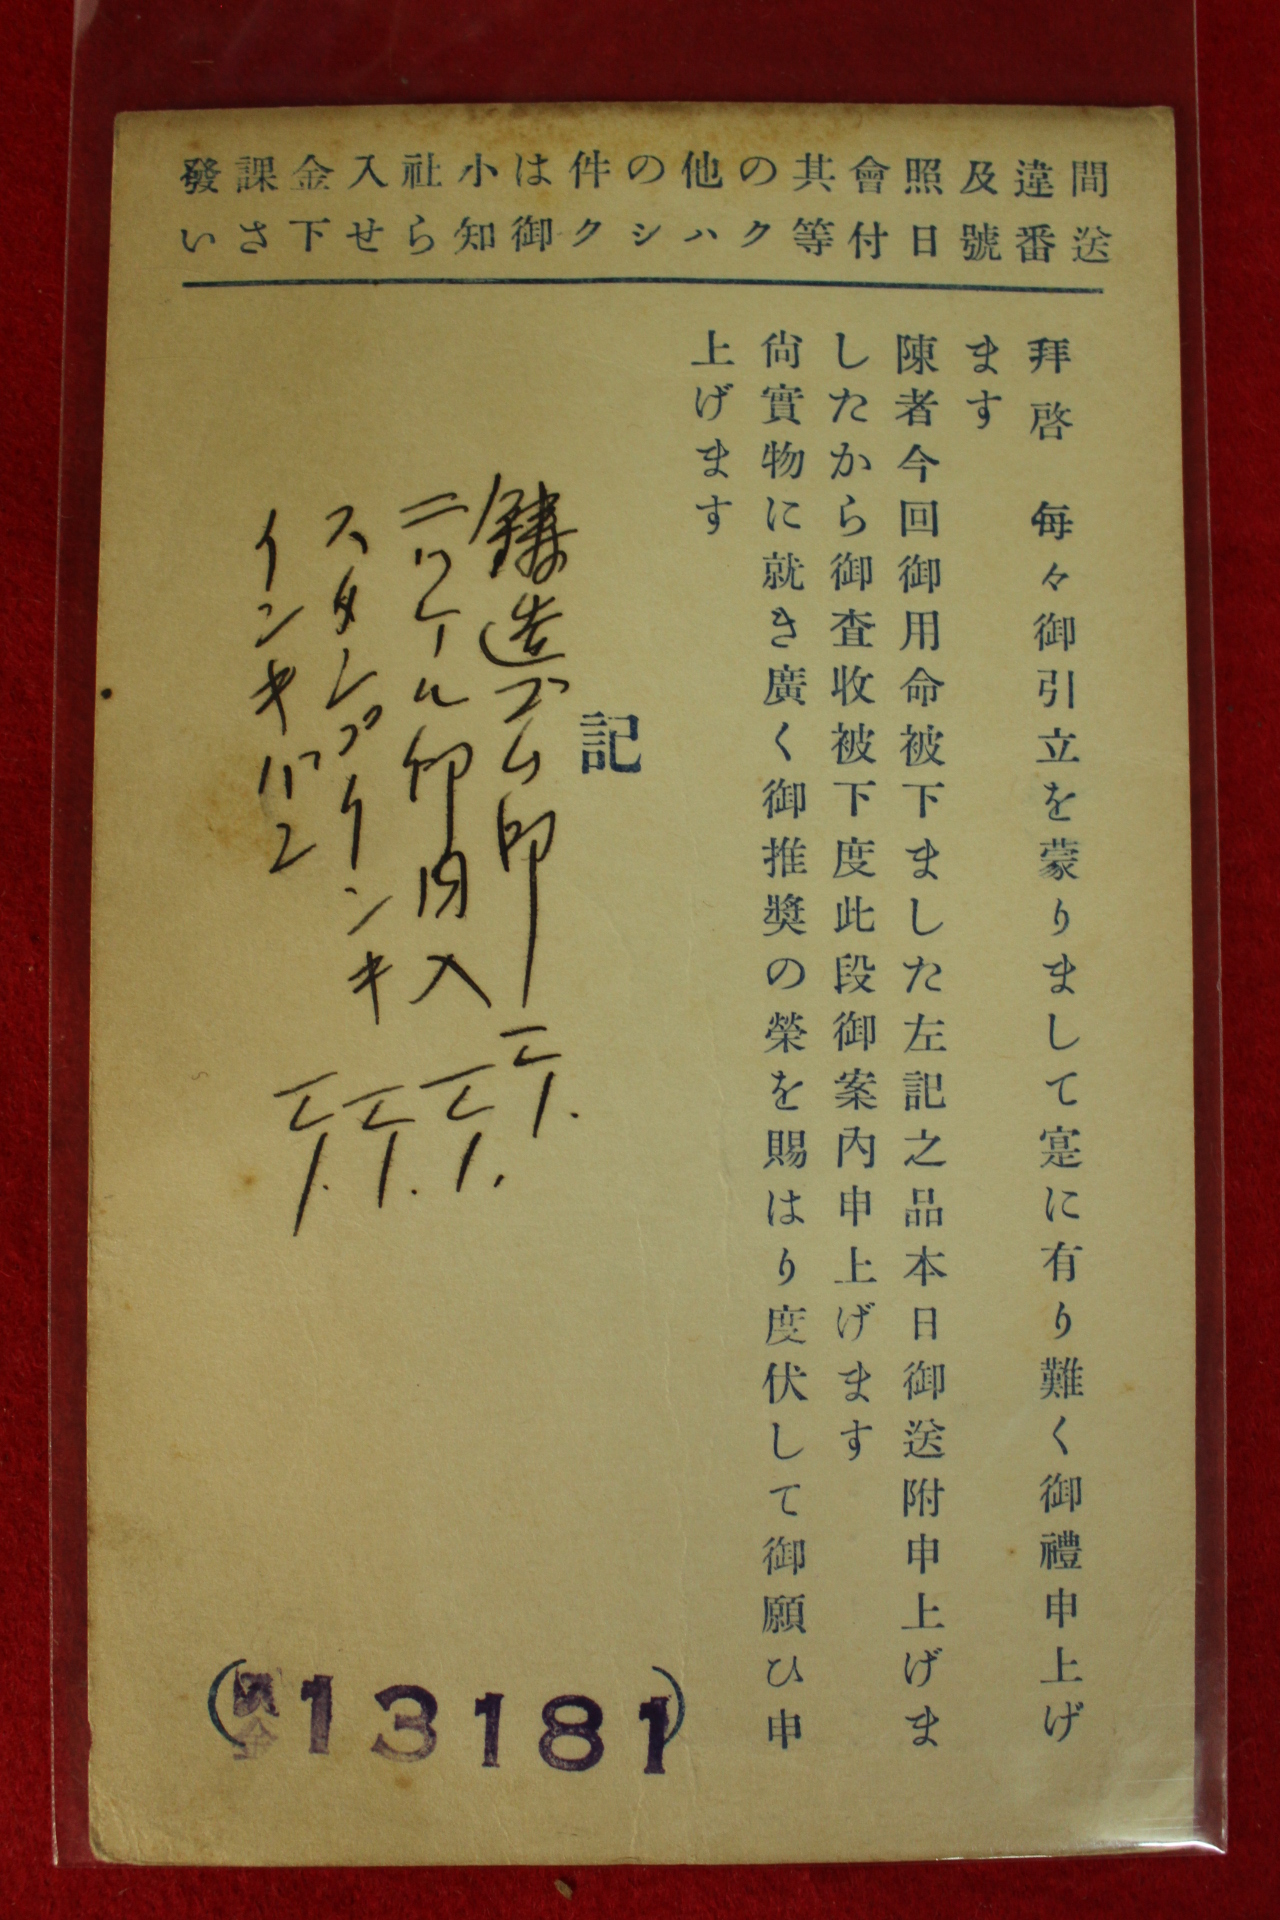 間違及照會其の他の件は小社入金課發
送番號日付等クハシク御知らせ下さい
拜啓 毎々御引立を蒙りまして寔に有り難く御禮申上げ
ます
陳者今回御用命被下ました左記之品本日御送附申上げま
したから御査收被下度此段御案內申上げます
尙實物に就き廣く御推奬の榮を賜はり度伏して御願ひ申
上げます
記
鑄造ゴム印
ニッケル印肉入
スタンプインキ
インキ
(13181)